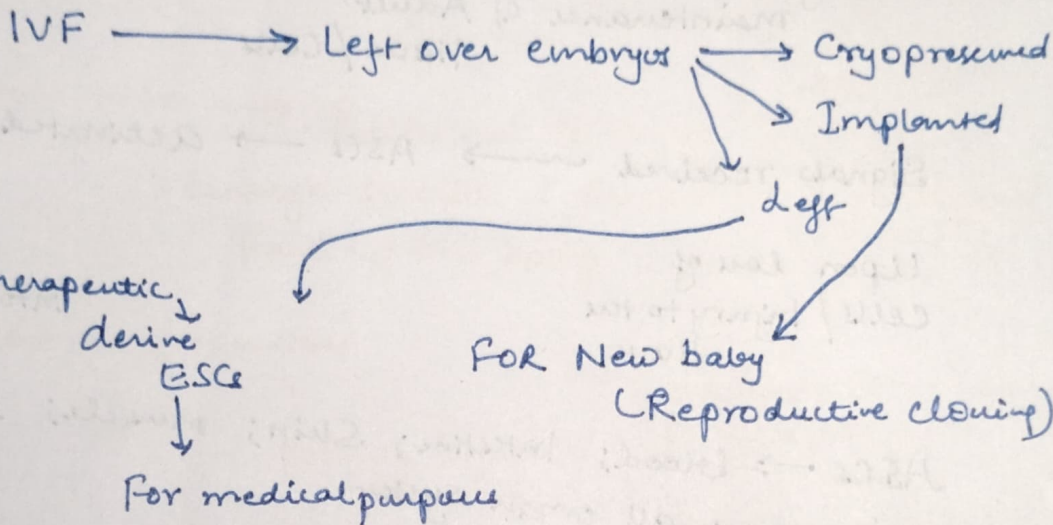 IVF → Left over embryos → Cryopreserved
→ Implanted
→ Left
herapeutic
derive
ESCs
↓
For medical purpose
FOR New baby
(Reproductive cloning)